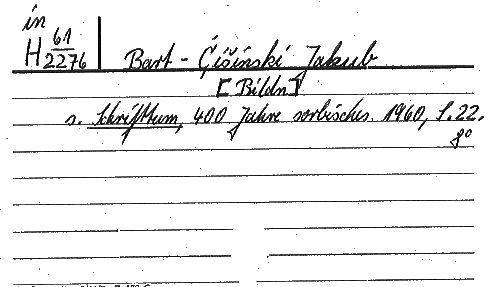 in
H 61/2276 Bart-Ćišinski Jakub
[Bildn]
s. Schrifttum, 400 Jahre sorbisches. 1960, S. 22.
8°